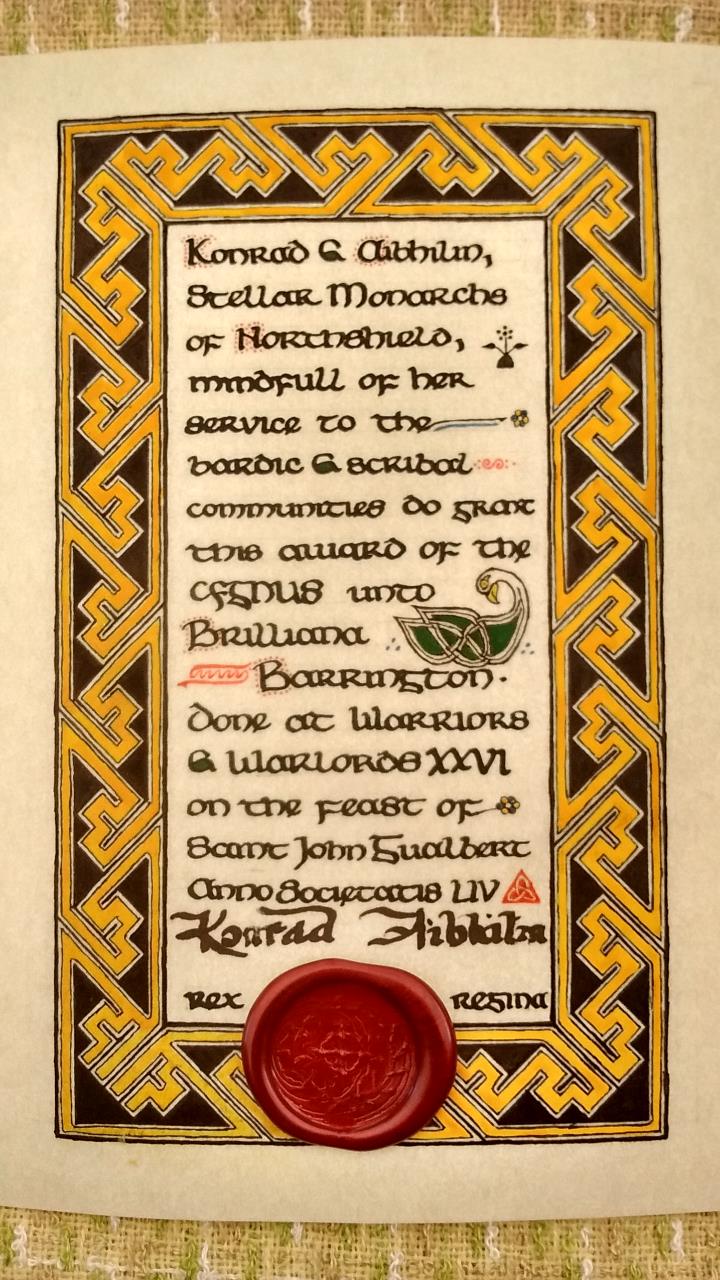 Konrad & Aibhilin,
Stellar Monarchs
of Northshield,
mindfull of her
service to the
bardic & scribal
communities do grant
this award of the
CYGNUS unto
Brilliana
Barrington.
done at Warriors
& Warlords XXVI
on the feast of
Saint John Gualbert
Anno Societatis LIV
Konrad Aibhilin
rex regina